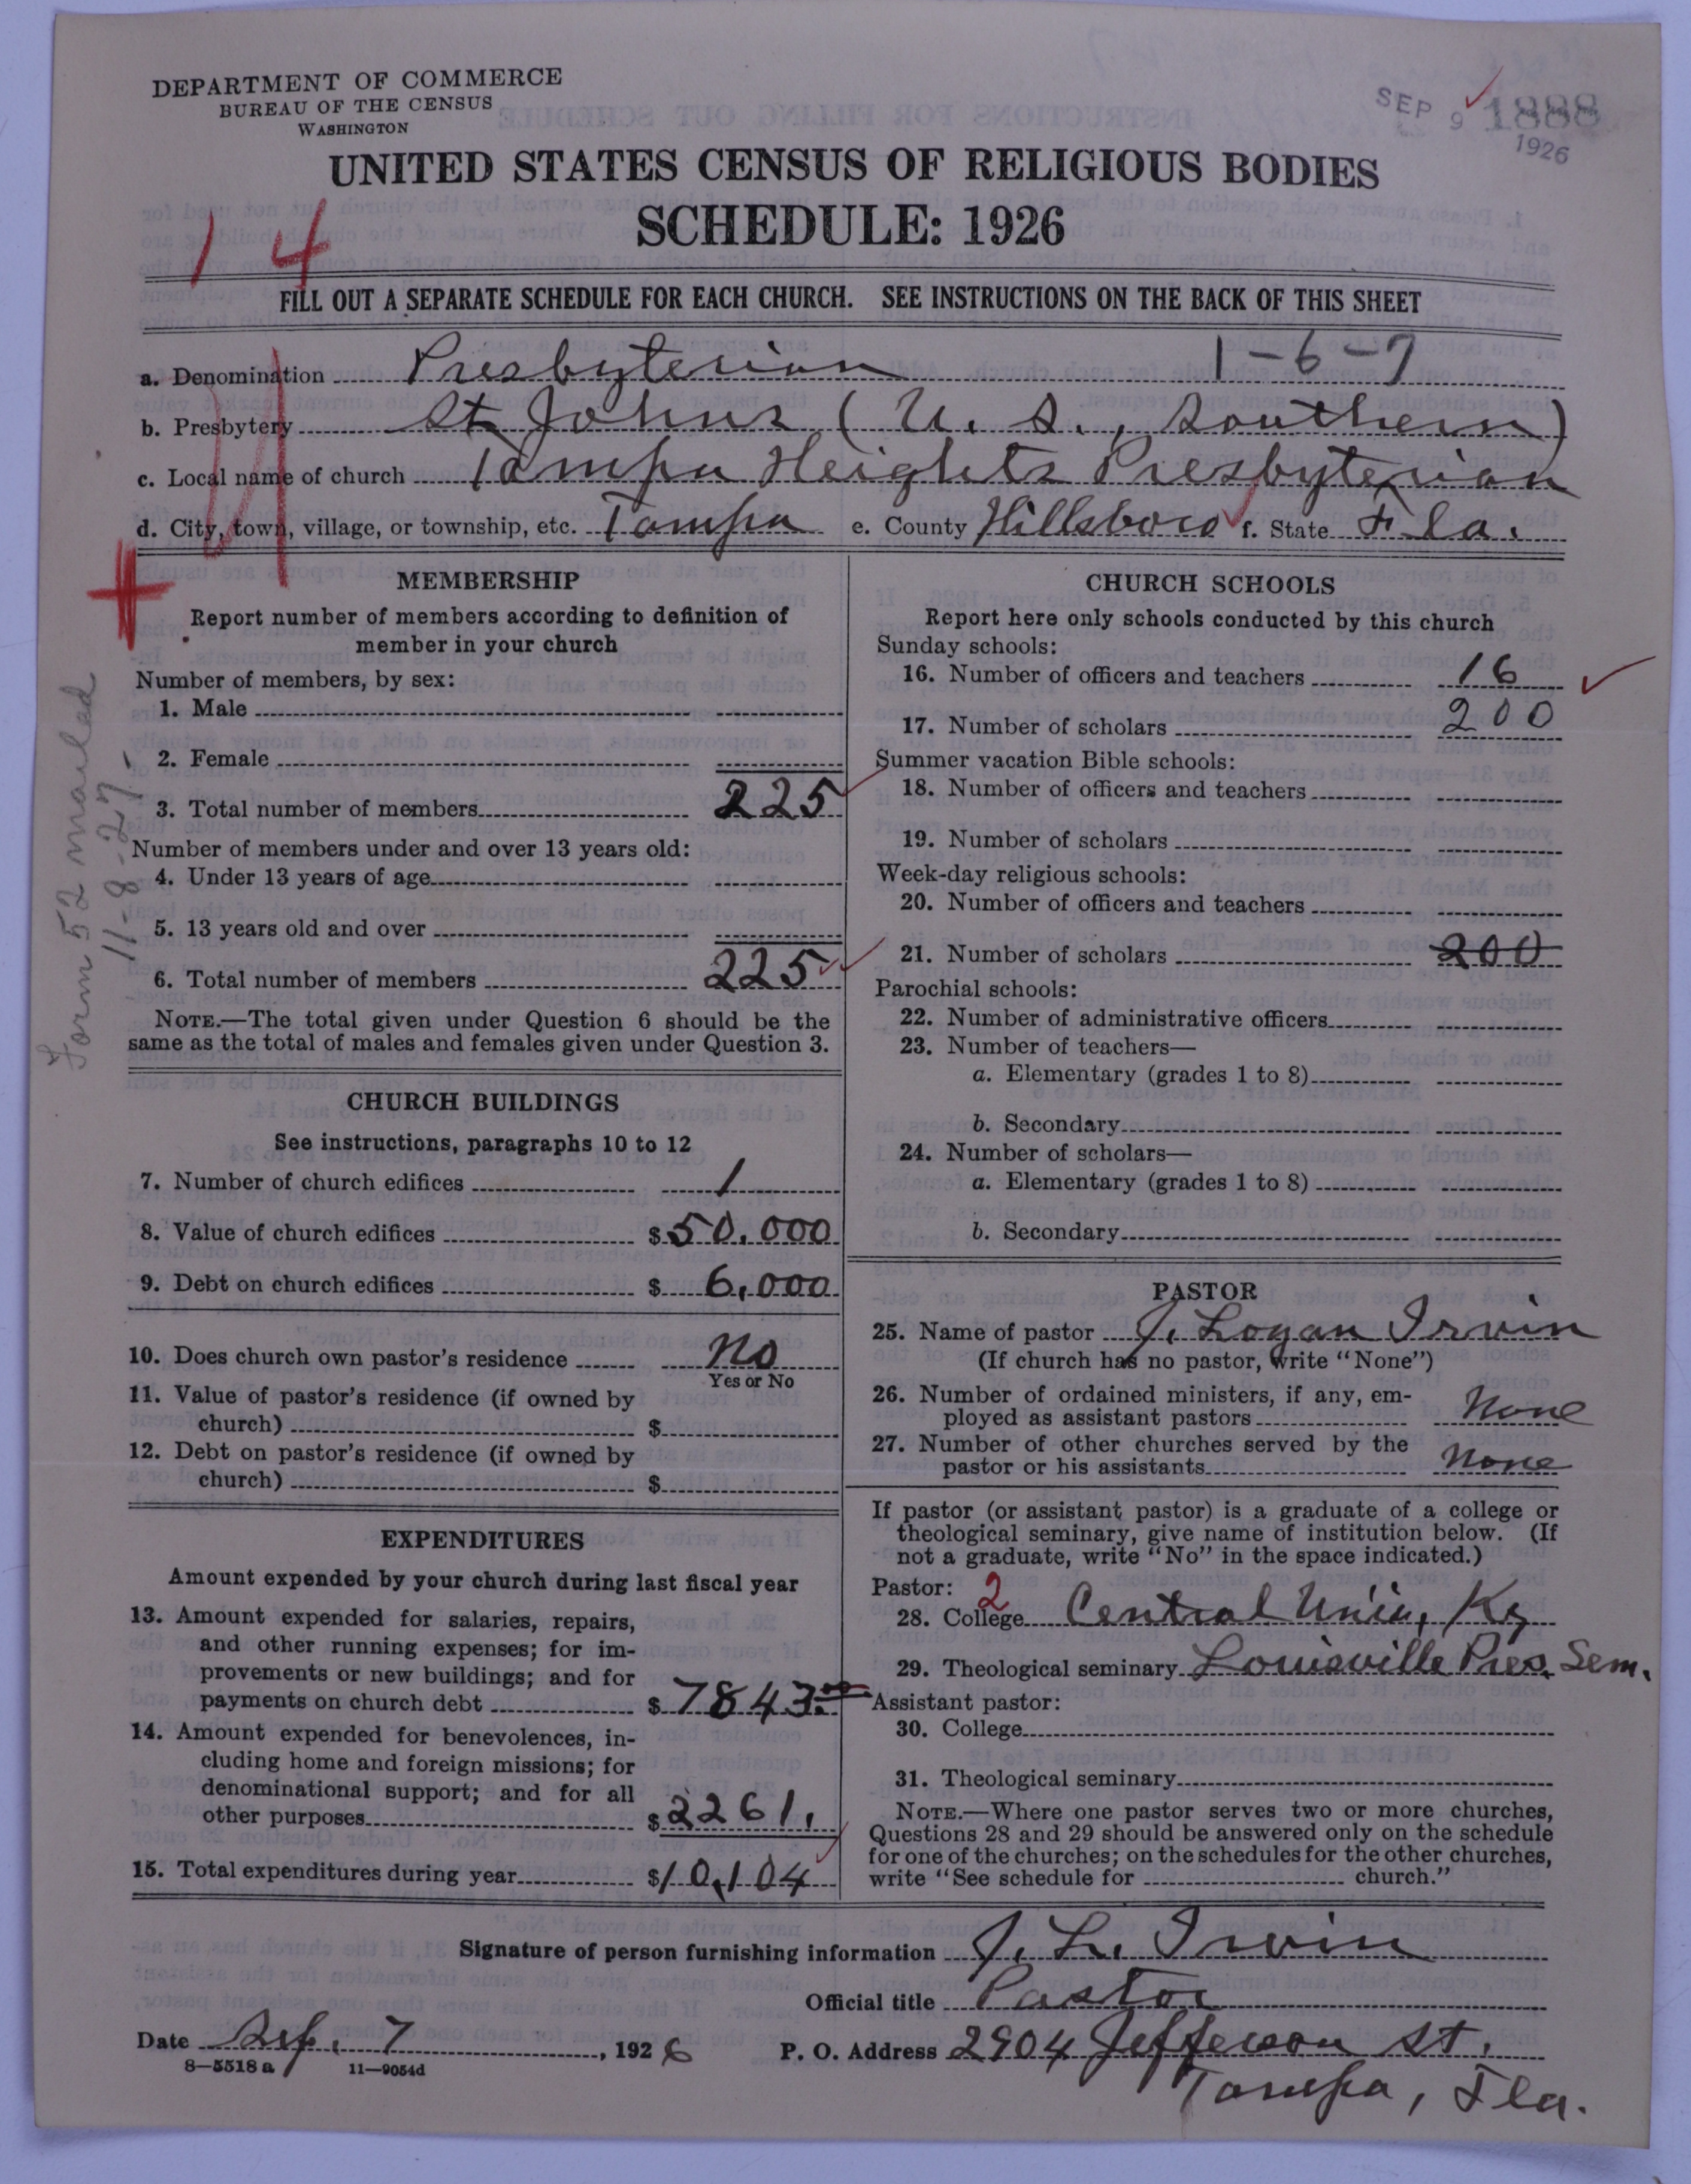 DEPARTMENT OF COMMERCE
BUREAU OF THE CENSUS
WASHINGTON
SEP 9 1926
1888
UNITED STATES CENSUS OF RELIGIOUS BODIES
SCHEDULE: 1926
14
FILL OUT A SEPARATE SCHEDULE FOR EACH CHURCH. SEE INSTRUCTIONS ON THE BACK OF THIS SHEET
a. Denomination Presbyterian 1-6-7
b. Presbytery St Johns (U. S., Southern)
c. Local name of church Tampa Heights Presbyterian
d. City, town, village, or township, etc. Tampa e. County Hillsboro f. State Fla.
Form 52 mailed
11-8-27
MEMBERSHIP
Report number of members according to definition of
member in your church
Number of members, by sex:
1. Male
2. Female
3. Total number of members 225
Number of members under and over 13 years old:
4. Under 13 years of age
5. 13 years old and over
6. Total number of members 225
NOTE.—The total given under Question 6 should be the
same as the total of males and females given under Question 3.
CHURCH BUILDINGS
See instructions, paragraphs 10 to 12
7. Number of church edifices 1
8. Value of church edifices $50.000
9. Debt on church edifices $6,000
10. Does church own pastor's residence No
Yes or No
11. Value of pastor's residence (if owned by
church) $
12. Debt on pastor's residence (if owned by
church) $
EXPENDITURES
Amount expended by your church during last fiscal year
13. Amount expended for salaries, repairs,
and other running expenses; for im-
provements or new buildings; and for
payments on church debt $7843.00
14. Amount expended for benevolences, in-
cluding home and foreign missions; for
denominational support; and for all
other purposes $2261.
15. Total expenditures during year $10,104
CHURCH SCHOOLS
Report here only schools conducted by this church
Sunday schools:
16. Number of officers and teachers 16
17. Number of scholars 200
Summer vacation Bible schools:
18. Number of officers and teachers
19. Number of scholars
Week-day religious schools:
20. Number of officers and teachers
21. Number of scholars 200
Parochial schools:
22. Number of administrative officers
23. Number of teachers—
a. Elementary (grades 1 to 8)
b. Secondary
24. Number of scholars—
a. Elementary (grades 1 to 8)
b. Secondary
PASTOR
25. Name of pastor J. Logan Irvin
(If church has no pastor, write "None")
26. Number of ordained ministers, if any, em-
ployed as assistant pastors None
27. Number of other churches served by the
pastor or his assistants None
If pastor (or assistant pastor) is a graduate of a college or
theological seminary, give name of institution below. (If
not a graduate, write "No" in the space indicated.)
Pastor: 2
28. College Central Univ, Ky
29. Theological seminary Louisville Pres. Sem.
Assistant pastor:
30. College
31. Theological seminary
NOTE.—Where one pastor serves two or more churches,
Questions 28 and 29 should be answered only on the schedule
for one of the churches; on the schedules for the other churches,
write "See schedule for church."
Signature of person furnishing information J. L. Irvin
Official title Pastor
Date Sep. 7, 1926 P. O. Address 2904 Jefferson St.
8—5518 a 11—9054d
Tampa, Fla.